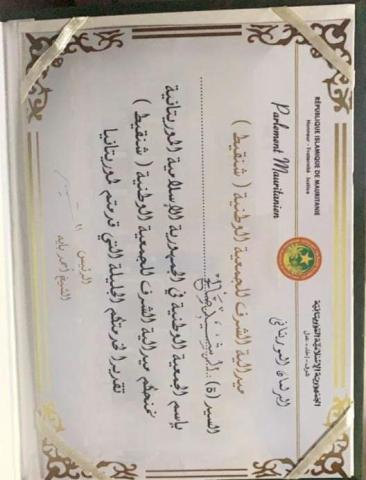 RÉPUBLIQUE ISLAMIQUE DE MAURITANIE
Honneur - Fraternité - Justice
Parlement Mauritanien
الجمهورية الإسلامية الموريتانية
شرف - إخاء - عدل
البرلمان الموريتاني
ميدالية الشرف للجمعية الوطنية ( شنقيط )
السيد (ة)
باسم الجمعية الوطنية في الجمهورية الإسلامية الموريتانية
نمنحكم ميدالية الشرف للجمعية الوطنية ( شنقيط )
تقديرا لخدمتكم الجليلة التي قدمتم لموريتانيا
الرئيس
الشيخ أحمد بايه